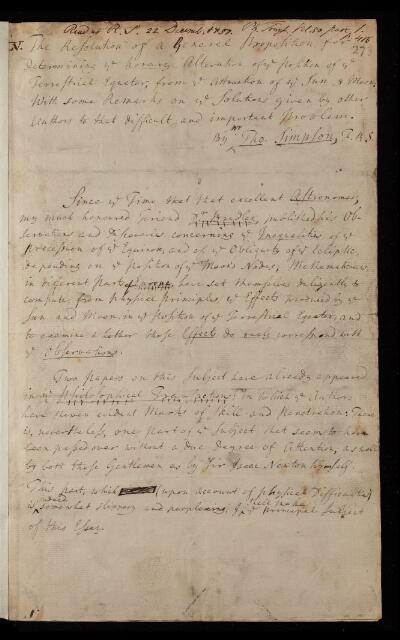 Read at R. S. 22 Decemb. 1757.
273
N. The Resolution of a General Proposition for
determining yᵉ horary Alteration of yᵉ position of yᵉ
Terrestrial Equator, from yᵉ Attraction of yᵉ Sun & Moon,
With some Remarks on yᵉ Solutions given by other
Authors to that difficult and important Problem.
By Mʳ Tho. Simpson, F.R.S
Since yᵉ Time that that excellent Astronomer,
my much honoured friend Dʳ Bradley, published his Ob-
servations and Discoveries concerning yᵉ Inequalities of yᵉ
Precession of yᵉ Equinox, and of yᵉ Obliquity of yᵉ Ecliptic,
depending on yᵉ position of yᵉ Moon's Nodes, Mathematicians,
in different parts of have set themselves diligently to
compute, from physical principles, yᵉ Effects produced by yᵉ
Sun and Moon, in yᵉ Position of yᵉ Terrestrial Equator; and
to examine whether those Effects do really correspond with
yᵉ Observations.
Two papers on this Subject have already appeared
in yᵉ Philosophical Transactions; in which yᵉ Authors
have shewn evident Marks of Skill and Penetration: There
is, nevertheless, one part of yᵉ Subject that seems to have
been passed over without a due Degree of Attention, as well
by both those Gentlemen as by Sir Isaac Newton himself.
This part, which (upon account of physical Difficulties)
is indeed somewhat slippery and perplexing, I shall make yᵉ principal Subject
of this Essay.